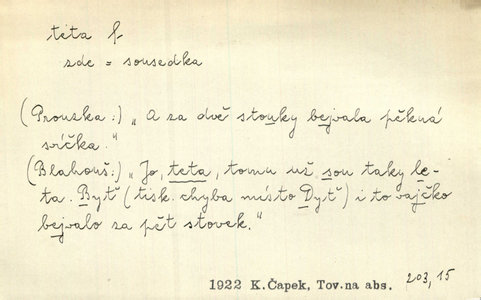 teta f.
zde = sousedka
(Prouzka:) „A za dvě stouky bejvala pěkná
svíčka."
(Blahouš:) „Jo, teta, tomu už sou taky le-
ta. Bytˇ (tisk. chyba místo Dytˇ) i to vajčko
bejvalo za pět stovek."
1922 K.Čapek, Tov.na abs. 203,15